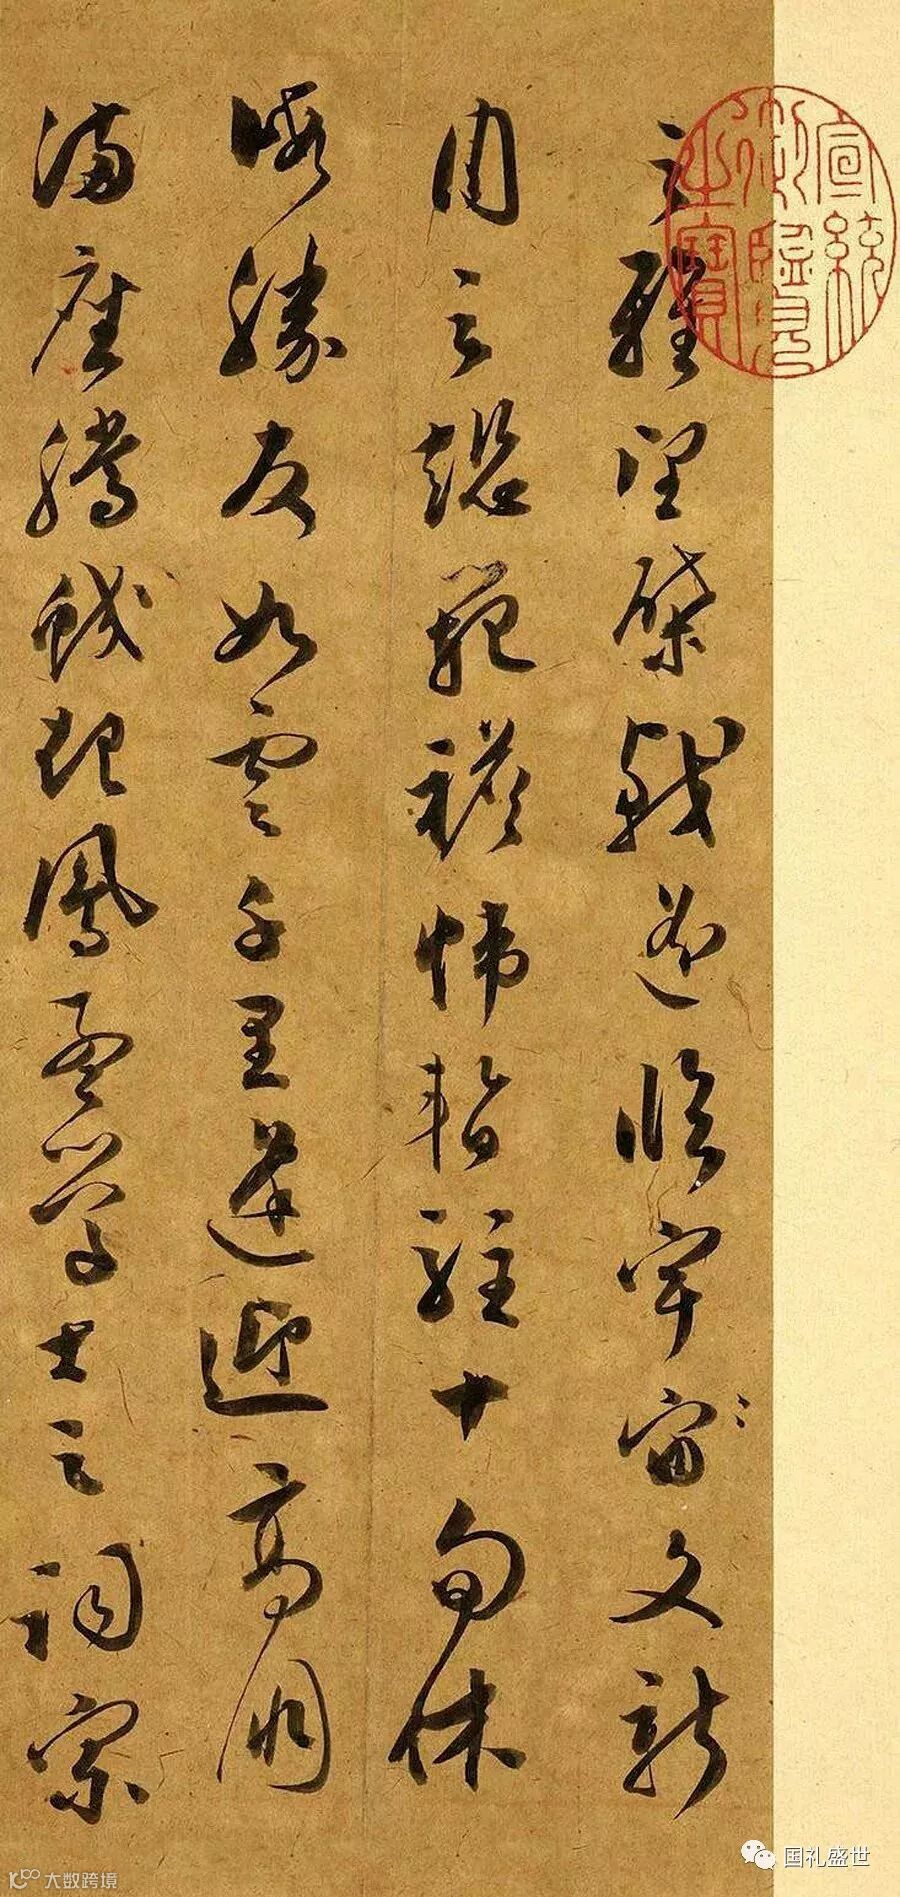 之雅望棨戟遥臨宇宙文新
州之懿範襜帷暫駐十旬休
暇勝友如雲千里逢迎高朋
滿座騰蛟起鳳孟學士之詞宗
宣統御覽之寶
国礼盛世
大数跨境